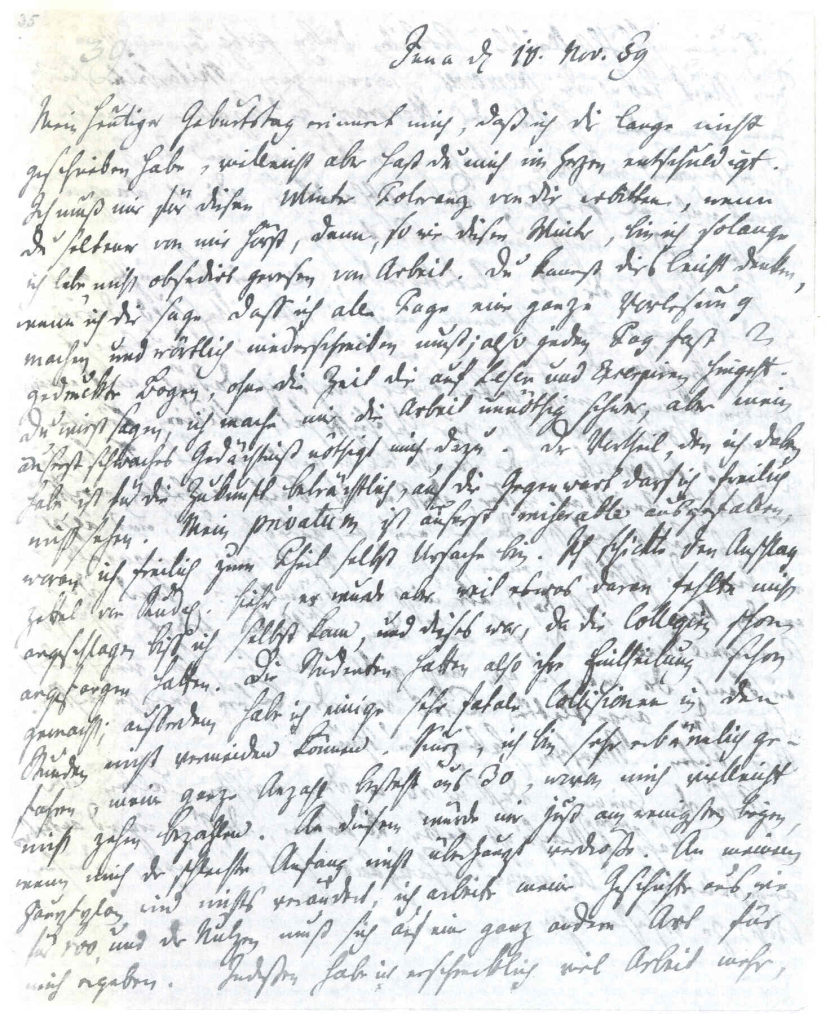 35
Jena d 10. Nov. 89
Mein heutiger Geburtstag erinnert mich, daß ich dir lange nicht
geschrieben habe, vielleicht aber hast du mich im Herzen entschuldigt.
Ich muß mir für diesen Winter Toleranz von dir erbitten, wenn
du seltener von mir hörst, denn, so wie diesen Winter, bin ich solange
ich lebe nicht obsediert gewesen von Arbeit. Du kannst dies leicht denken,
wenn ich dir sage daß ich alle Tage eine ganze Vorlesung
machen und wörtlich niederschreiben muß; also jeden Tag fast 2
gedruckte Bogen, ohne die Zeit die auf Lesen und Excerpiren hingeht.
Du wirst sagen, ich mache mir die Arbeit unnöthig schwer, aber mein
äuserst schwaches Gedächtniß nöthigt mich dazu. Der Vortheil, den ich davon
habe ist für die Zukunft beträchtlich, auf die Gegenwart darf ich freilich
nicht sehen. Mein privatum ist äuserst miserable ausgefallen,
woran ich freilich zum Theil selbst Ursache bin. Ich schickte den Anschlag
zettel von hieher, er wurde aber weil etwas daran fehlte nicht
angeschlagen biß ich selbst kam, und dieses war, da die Collegien schon
angefangen hatten. Die Studenten hatten also ihre Eintheilung schon
gemacht; ausserdem habe ich einige sehr fatale Collisionen in den
Stunden nicht vermeiden können. Kurz, ich bin sehr erbärmlich ge-
fahren, meine ganze Anzahl besteht aus 30, wovon mich vielleicht
nicht zehen bezahlen. An diesem würde mir just am wenigsten liegen,
wenn mich der schlechte Anfang nicht überhaupt verdrösse. An meinem
wird nichts verändert, ich arbeite meine Geschichte aus, wie
für 100 und der Nutzen muß sich auf eine ganz andere Art für
mich ergeben. Indessen habe ich erschrecklich viel Arbeit mehr,